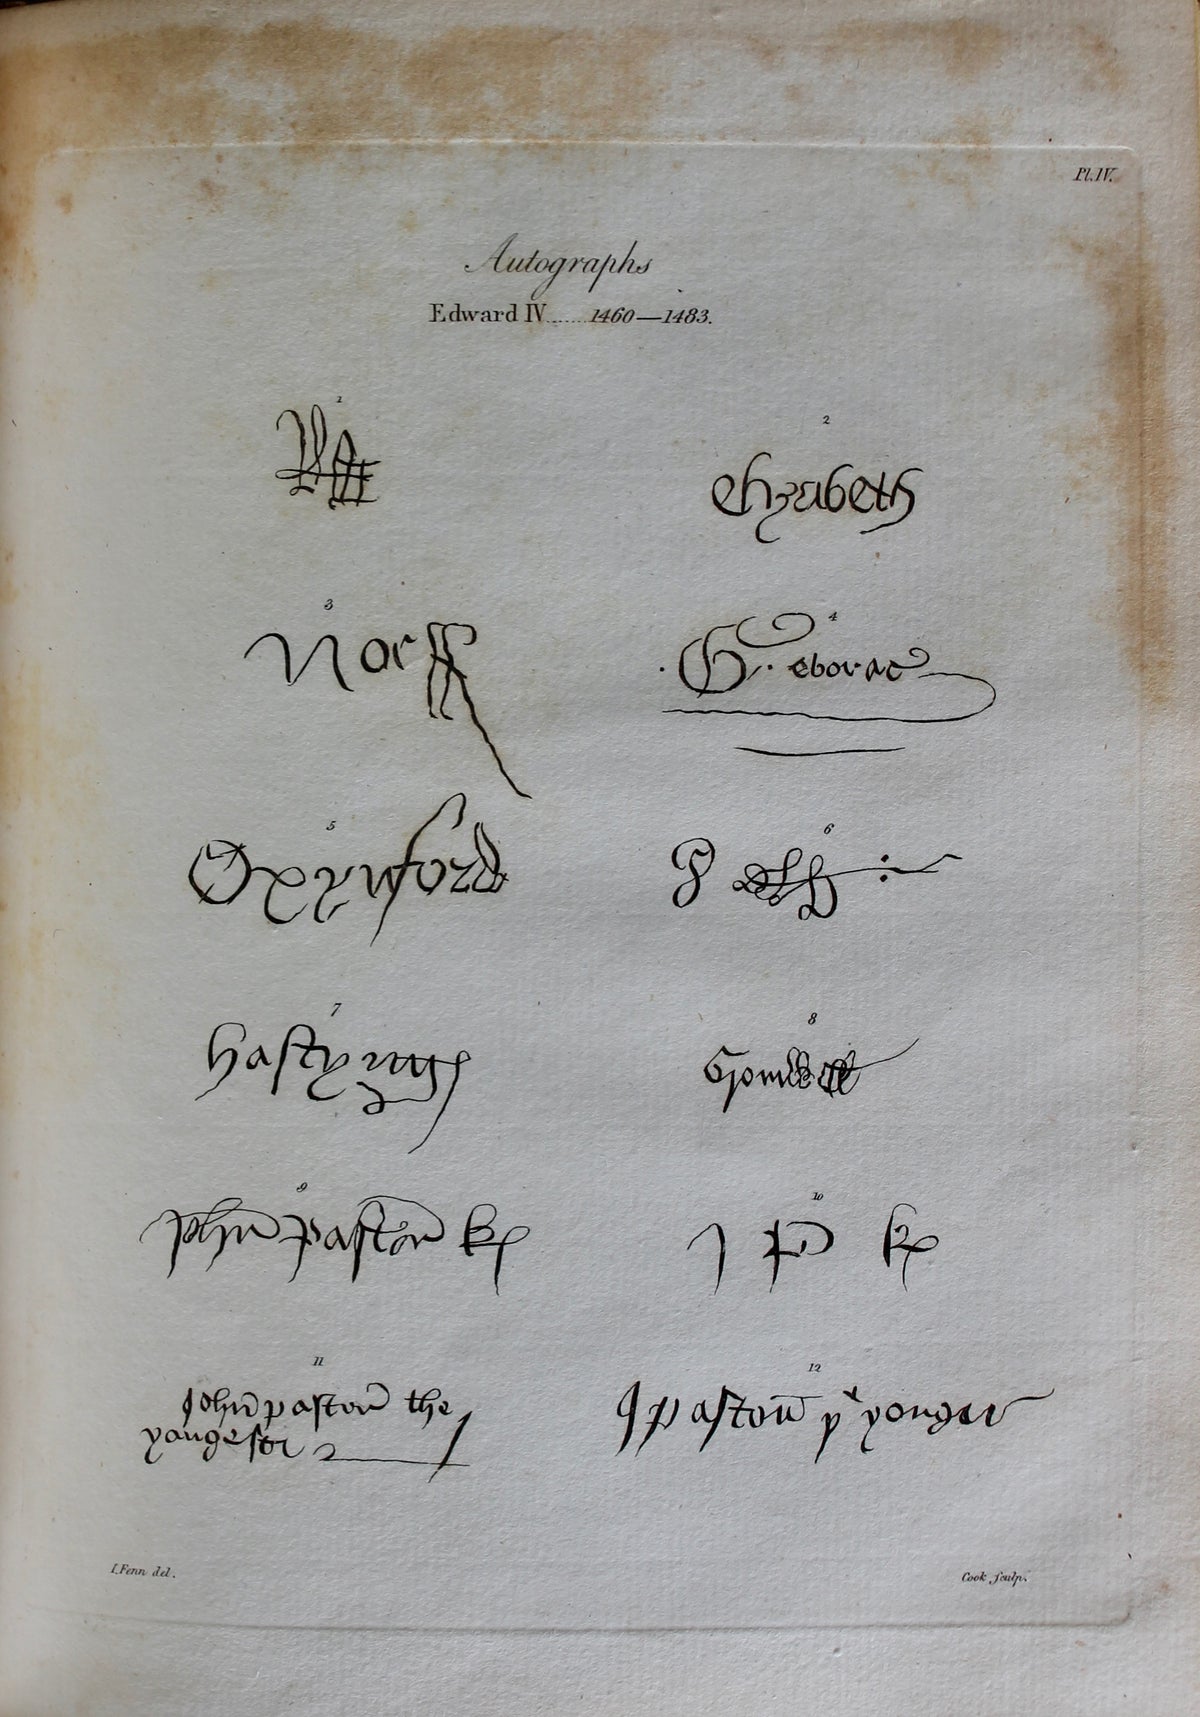 Pl. IV.
Autographs
Edward IV......1460—1483.
1
2
Elyzabeth
3
Norff
4
.G.. eborac
5
Oxynford
6
7
hastyngs
8
9
John paston k
10
J P k
11
John paston the
yongest
12
J paston yᵉ yonger
I. Fenn del.
Cook sculp.